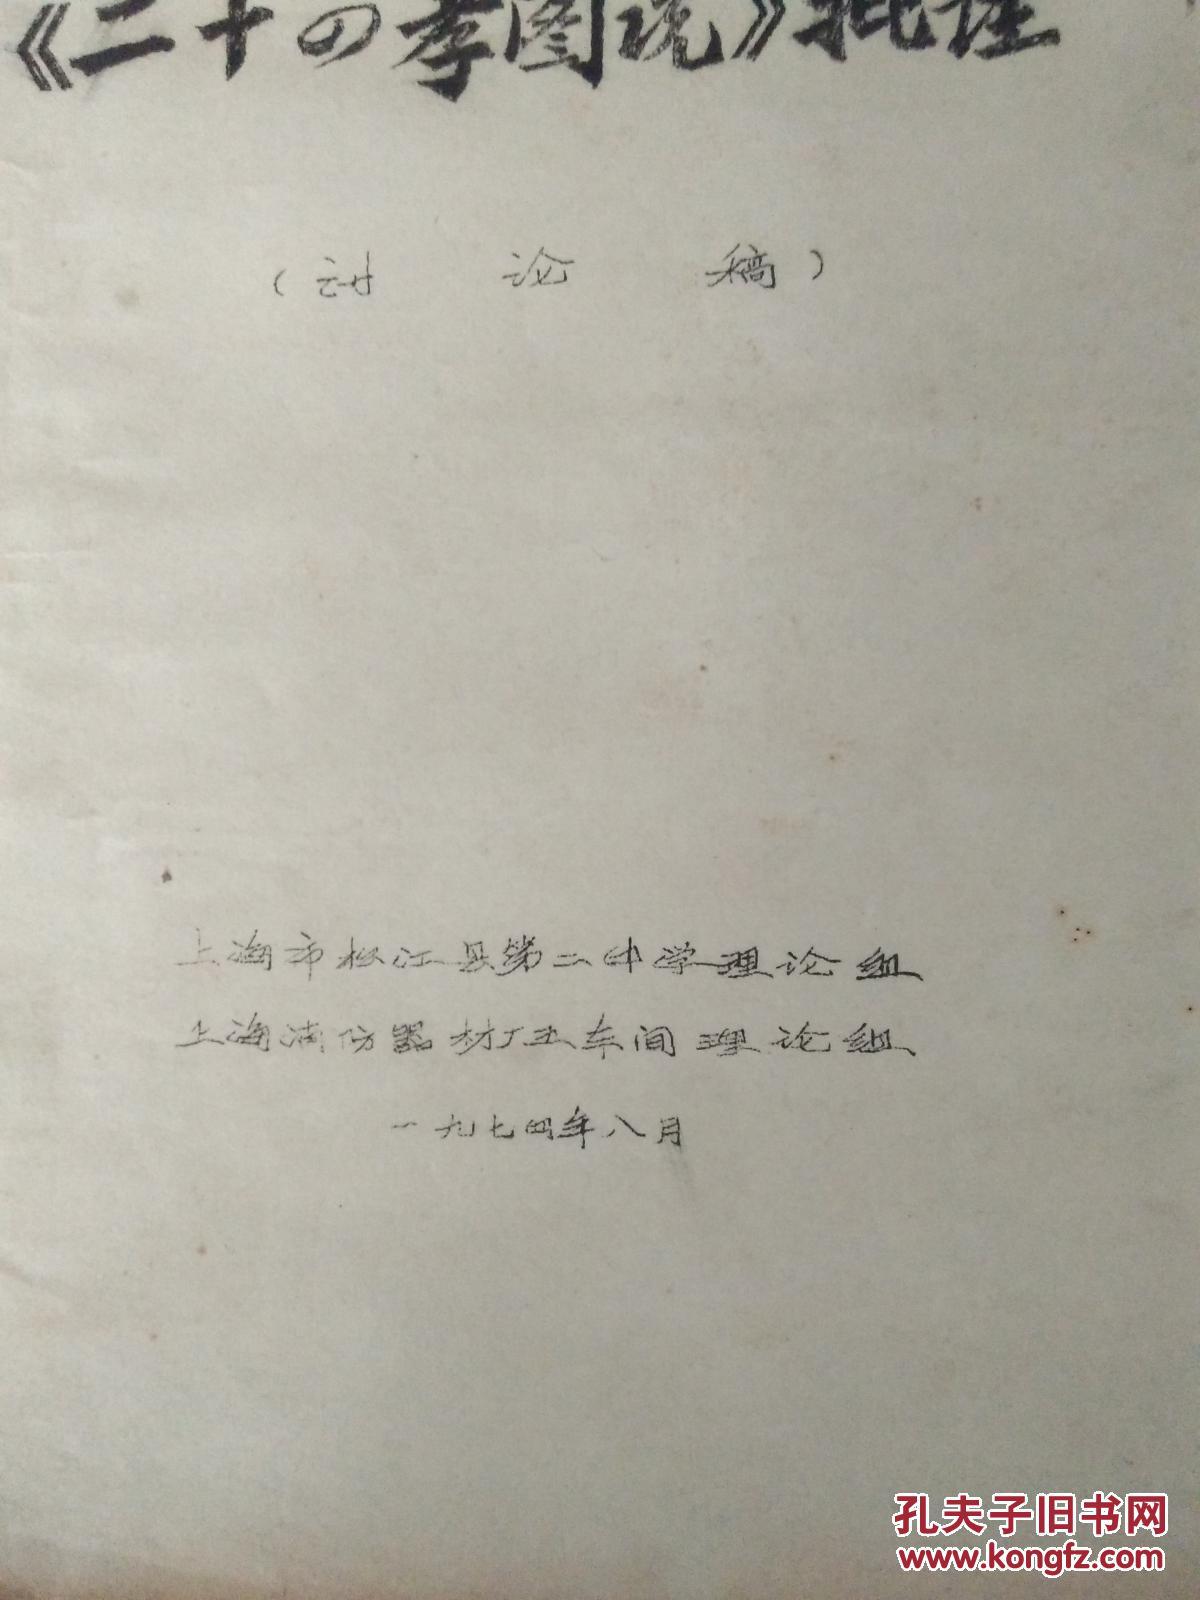 《二十四孝图说》批注
（讨论稿）
上海市松江县第二中学理论组
上海消防器材厂五车间理论组
一九七四年八月
孔夫子旧书网
www.kongfz.com